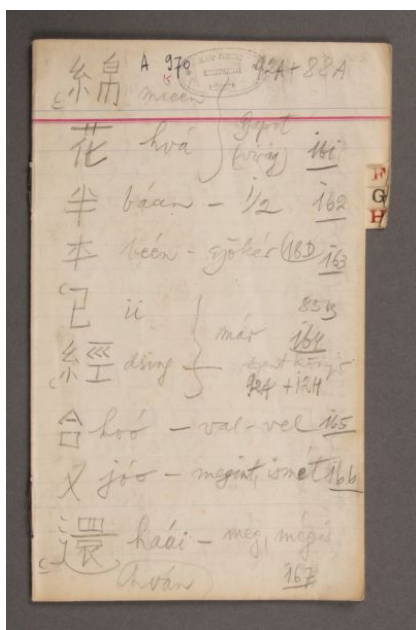 綿 A 970 92A+88A
mieen
花 hvá gyapot
(virág) 161
半 báan - 1/2 162
本 been - gyökér (18D) 163
已 ii 85B
már 164
經 dsing szent könyv
92A + 12H
合 hoó - val-vel 165
又 jóo - megint, ismét 166
還 haái - még, mégis
hván 167
F
G
H